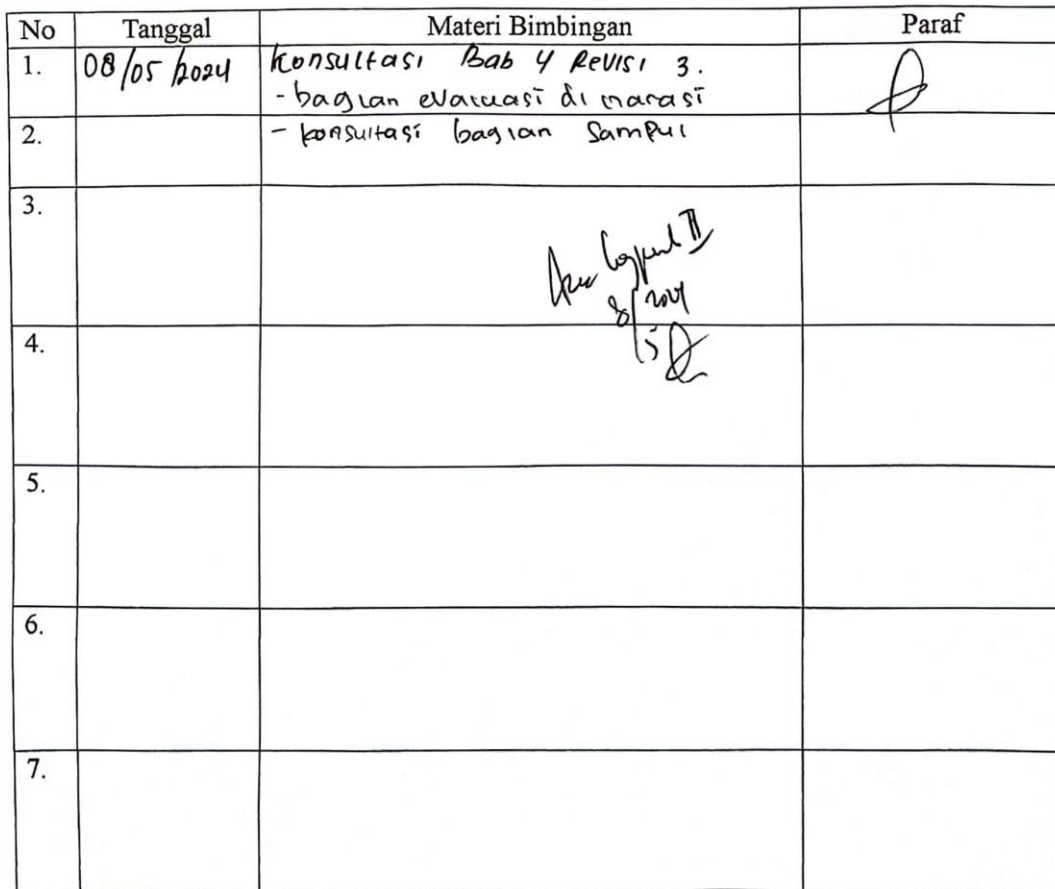 No Tanggal Materi Bimbingan Paraf
1. 08/05/2024 Konsultasi Bab 4 Revisi 3.
- bagian evaluasi di narasi
2. - konsultasi bagian Sampul
3.
II
8/5 2024
4.
5.
6.
7.